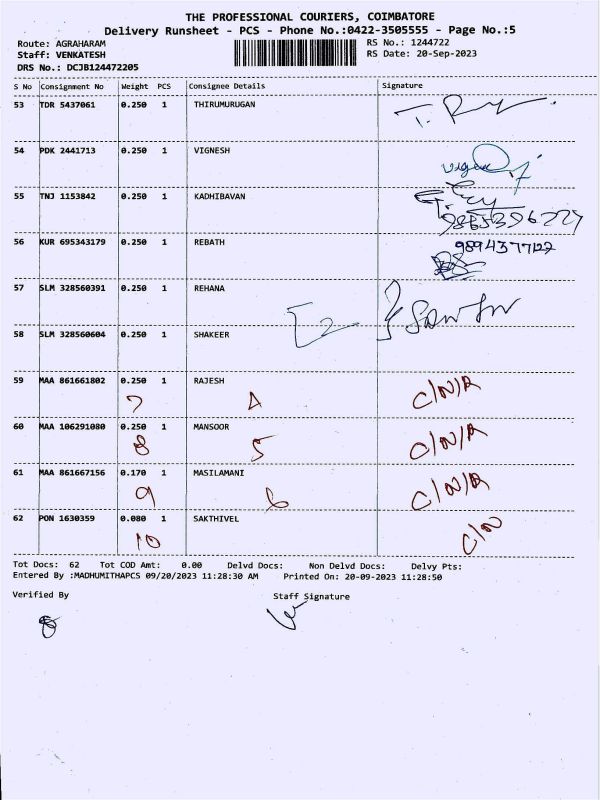 THE PROFESSIONAL COURIERS, COIMBATORE
Delivery Runsheet - PCS - Phone No.:0422-3505555 - Page No.:5
Route: AGRAHARAM RS No.: 1244722
Staff: VENKATESH RS Date: 20-Sep-2023
DRS No.: DCJB124472205
S No Consignment No Weight PCS Consignee Details Signature
53 TDR 5437061 0.250 1 THIRUMURUGAN
54 PDK 2441713 0.250 1 VIGNESH
55 TNJ 1153842 0.250 1 KADHIBAVAN
56 KUR 695343179 0.250 1 REBATH
9894377122
57 SLM 328560391 0.250 1 REHANA
2
58 SLM 328560604 0.250 1 SHAKEER
59 MAA 861661802 0.250 1 RAJESH C/N/A
7 4
60 MAA 106291080 0.250 1 MANSOOR C/N/A
8 5
61 MAA 861667156 0.170 1 MASILAMANI C/N/A
9 6
62 PON 1630359 0.080 1 SAKTHIVEL C/N
10
Tot Docs: 62 Tot COD Amt: 0.00 Delvd Docs: Non Delvd Docs: Delvy Pts:
Entered By :MADHUMITHAPCS 09/20/2023 11:28:30 AM Printed On: 20-09-2023 11:28:50
Verified By Staff Signature